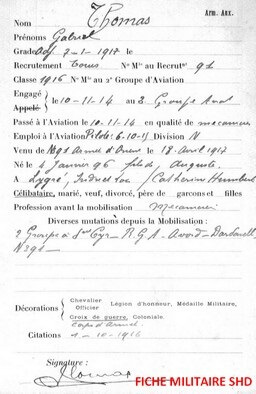 Arm. Aux.
Nom Thomas
Prénoms Gabriel
Grade Adj 7-1-1917 le
Recrutement Tours N° Mle au Recrutt 91
Classe 1916 N° Mle au 2e Groupe d'Aviation
Engagé
Appelé le 10-11-14 au 2 Groupe
Passé à l'Aviation le 10-11-14 en qualité de mecanicien
Emploi à l'Aviation Pilote 6-10-15 Division N
Venu de N 391 Armée d'Orient le 18 Avril 1917
Né le 4 Janvier 96 fils de Auguste
A Indre et Loire / Catherine Humbert
Célibataire, marié, veuf, divorcé, père de garçons et filles
Profession avant la mobilisation Mecanicien
Diverses mutations depuis la Mobilisation :
2 Groupe à St Cyr - R.G.A - Avord - Dardanelles
N 391 -
Décorations
Chevalier
Officier
Légion d'honneur, Médaille Militaire,
Croix de guerre, Coloniale.
Corps d'Armée
Citations 1-10-1916
Signature :
Thomas
FICHE MILITAIRE SHD